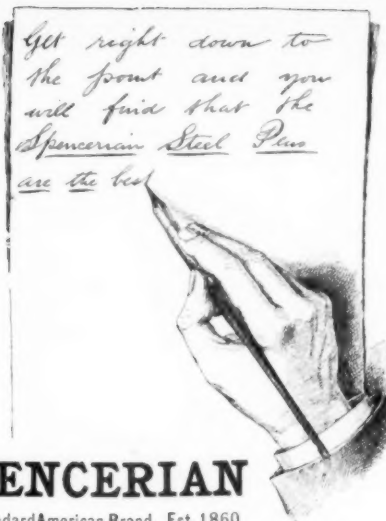 Get right down to
the point and you
will find that the
Spencerian Steel Pens
are the best
ENCERIAN
dardAmerican Brand. Est. 1860